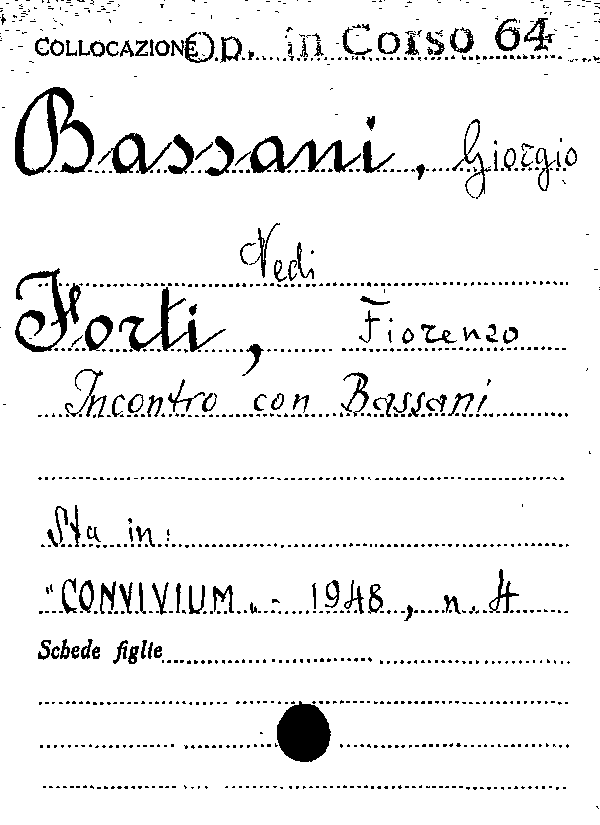 COLLOCAZIONE Op. in Corso 64
Bassani, Giorgio
Vedi
Forti, Fiorenzo
Incontro con Bassani
Sta in:
"CONVIVIUM„ - 1948, n. 4
Schede figlie